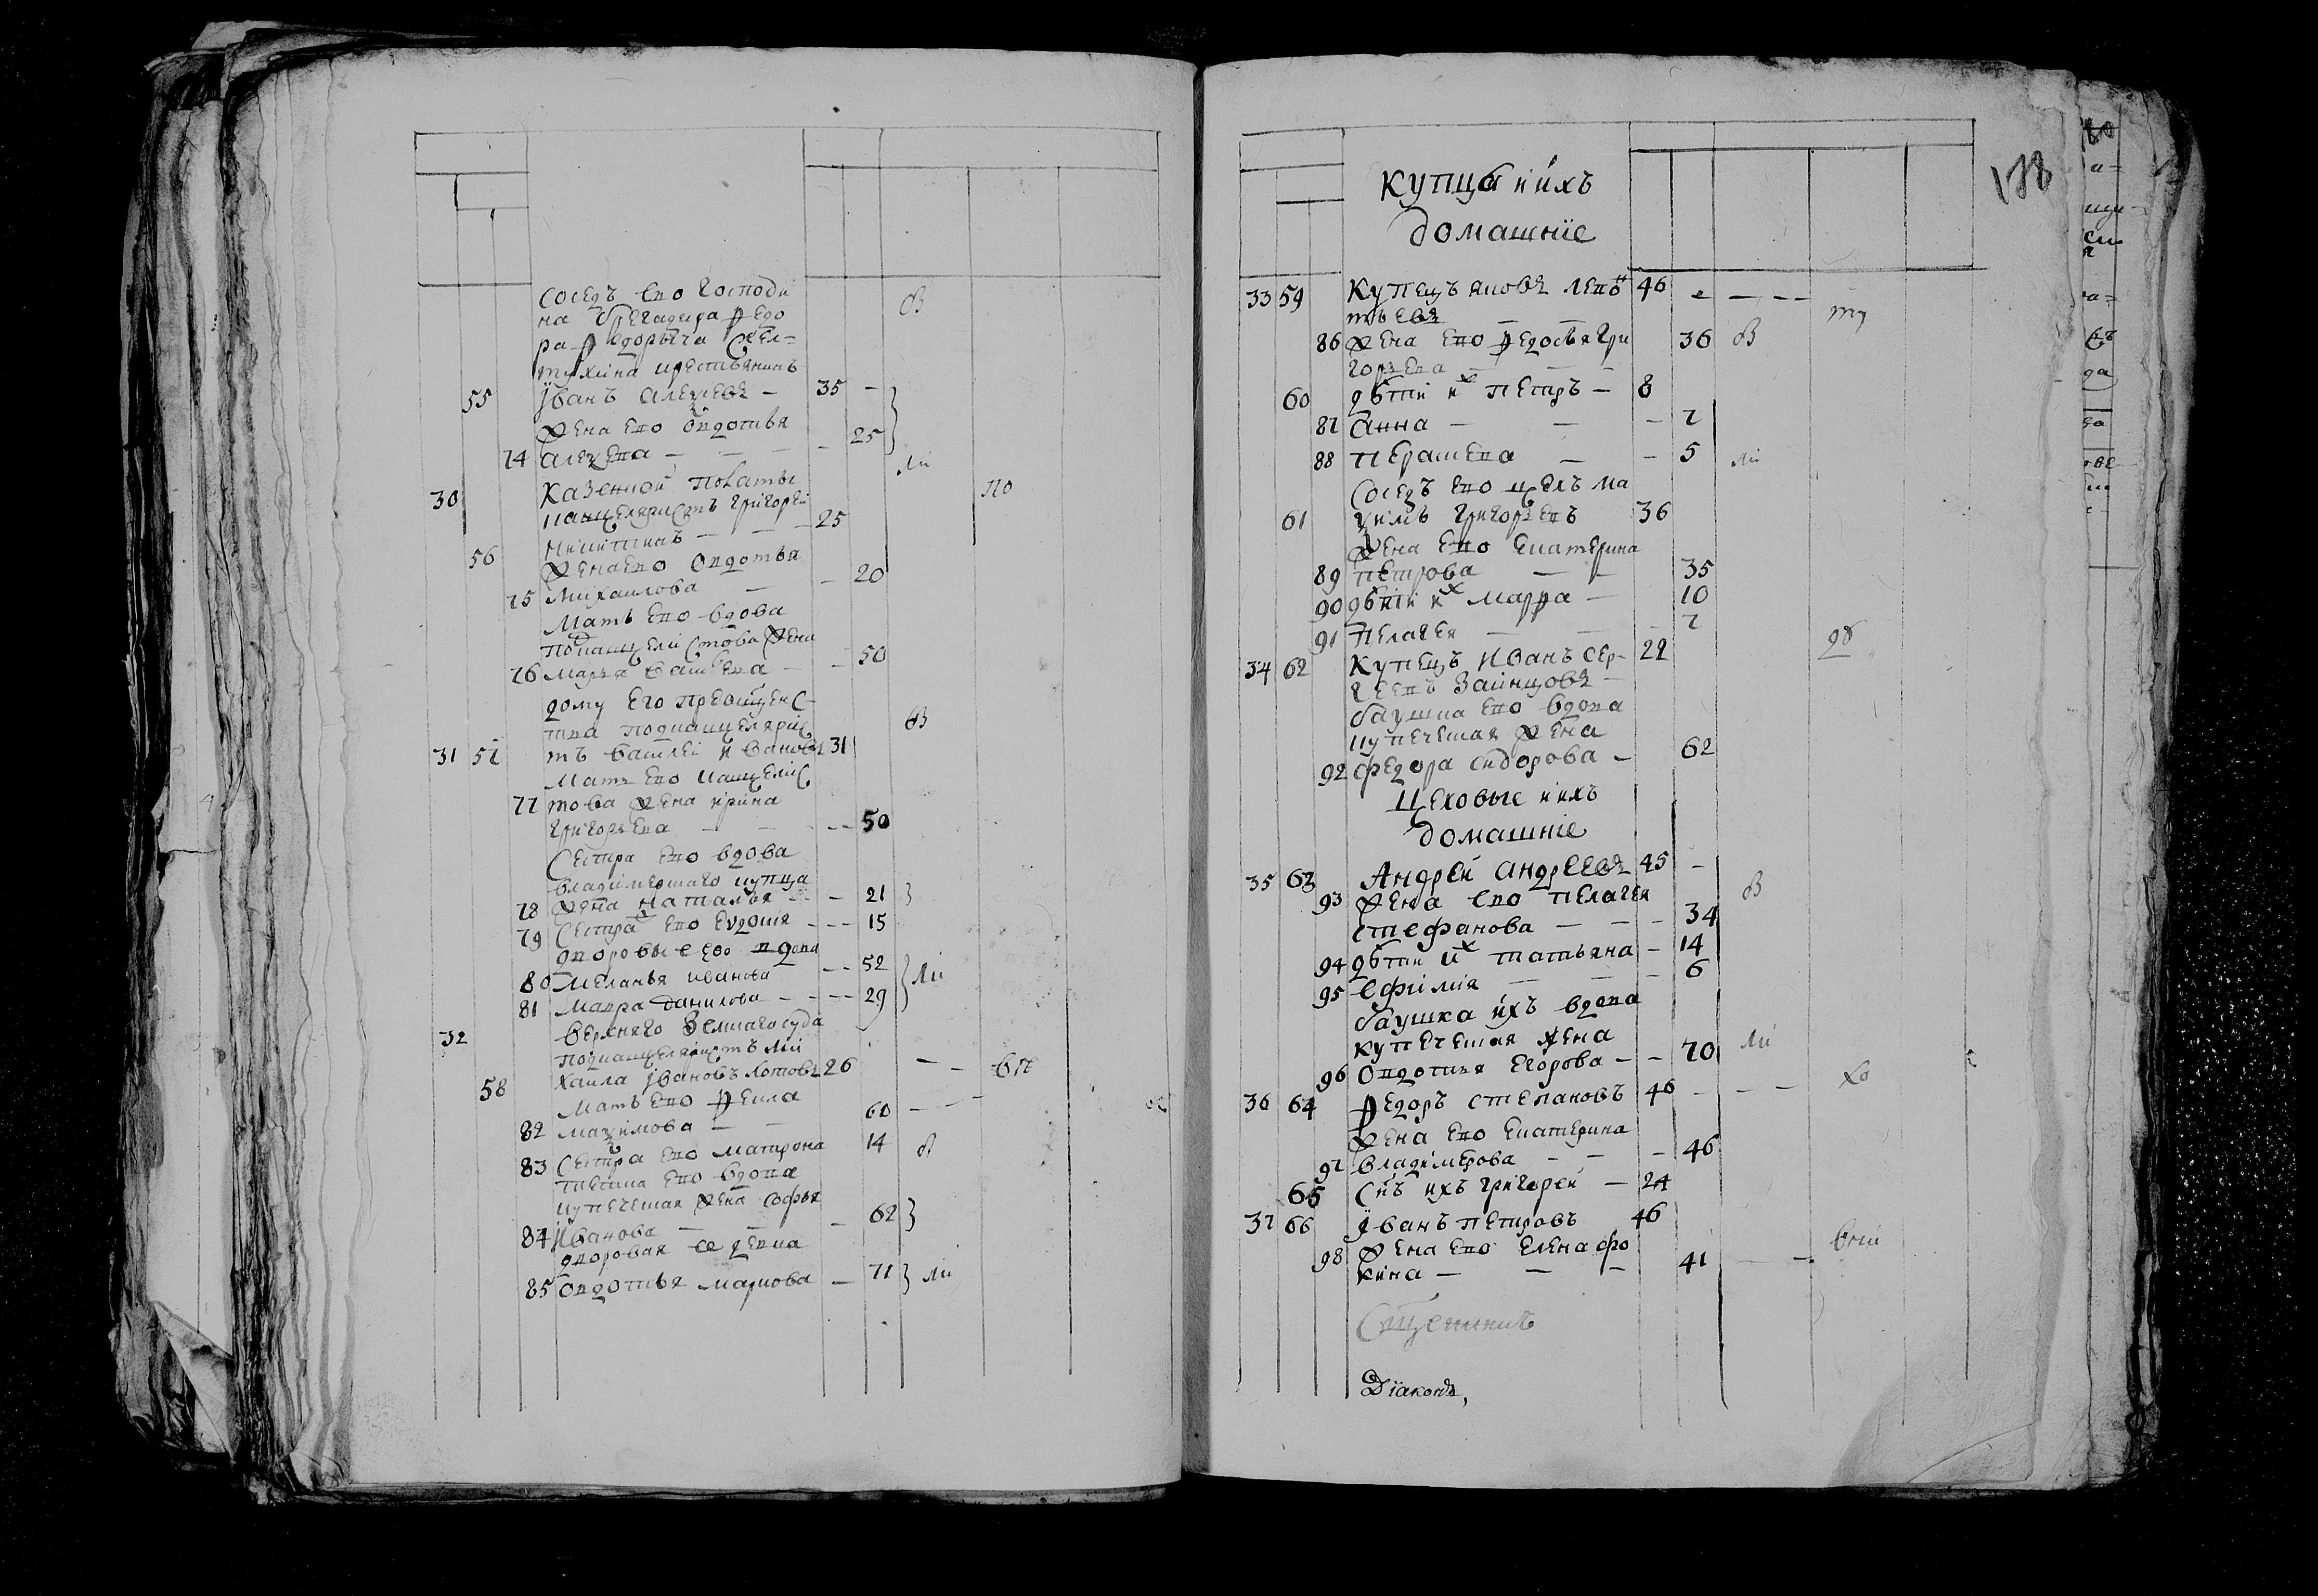 соседъ ево господи
на брегадира Ѳедо
ра Ѳедорыча
крестьянинъ
55 Iванъ Алексеевъ — 35 —
жена ево Овдотья
74 Алексева — — — 25
30 Казенной полаты
канцеляристъ григорей
56 Никитинъ — — 25
жена ево Овдотья
75 Михаилова — — 20
мать ево вдова
подканцелистова жена
76 марья васильева — — 50
дому его преосщенс
тва подканцелярис
31 57 тъ василеи ивановъ 31
мать ево канцелис
77 това жена ирина
григорьева — — — 50
сестра ево вдова
владимерскаго купца
78 жена наталья — — 21
79 сестра ево Евдокия — — 15
дворовые ево вдова
80 меланья иванова — — 52
81 мавра данилова — — 29
32 верхняго земскаго суда
подканцеляристъ ми
58 хаила Iвановъ Котовъ 26
мать ево Ѳекла
82 максимова — — 60
83 сестра ево матрона 14
тетка ево вдова
купеческая жена софья
84 Иванова — — 62
дворовая ее девка
85 Овдотья маркова — 71
Купцы и ихъ
домашнiе
178
33 59 Купецъ яковъ леон 46
тьевъ — —
86 жена ево Ѳедосья гри 36
горьева — — —
60 дѣти их петръ — 8
87 Анна — — — 7
88 Прасковья — — 5
соседъ ево цехъ ма
61 ксимъ григорьевъ 36
жена ево екатерина
89 петрова — — 35
90 дѣти их марѳа — 10
91 пелагея — — 7
34 62 Купецъ Иванъ сер- 22
геевъ Заинцовъ —
баушка ево вдова
купеческая жена
92 федора сидорова — 62
Цеховые и ихъ
домашнiе
35 63 Андрей Андреевъ 45 —
93 жена ево пелагея
стефанова — — — 34
94 дѣти их татьяна — 14
95 ефимия — — — 6
баушка ихъ вдова
купеческая жена
96 Овдотья Егорова — — 70
36 64 Ѳедоръ степановъ 46 —
жена ево екатерина
97 владимерова — — — 46
65 сынъ ихъ григорей — 24
37 66 Iванъ петровъ 46
98 жена ево Елена фо
кина — — — 41
Священникъ
Дiаконъ,